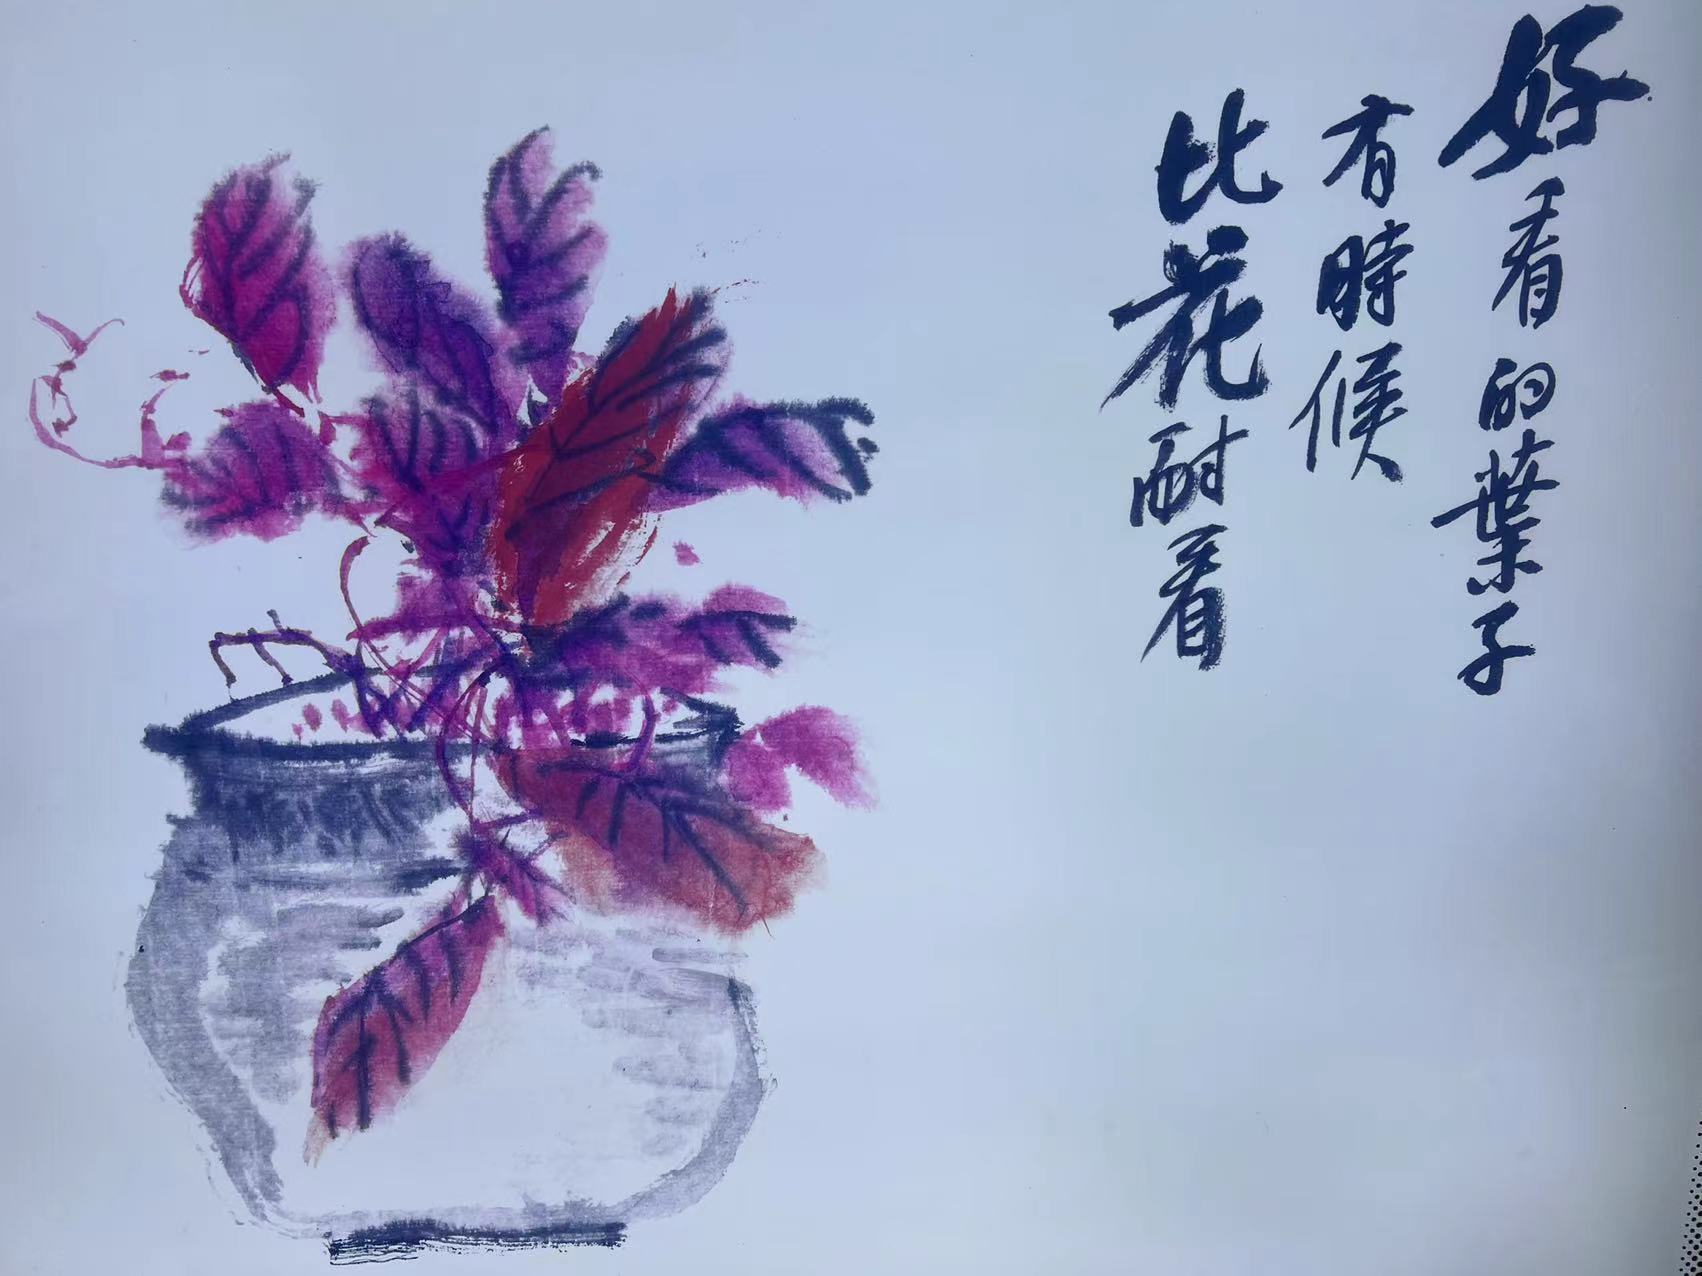 好看的葉子
有時候
比花耐看